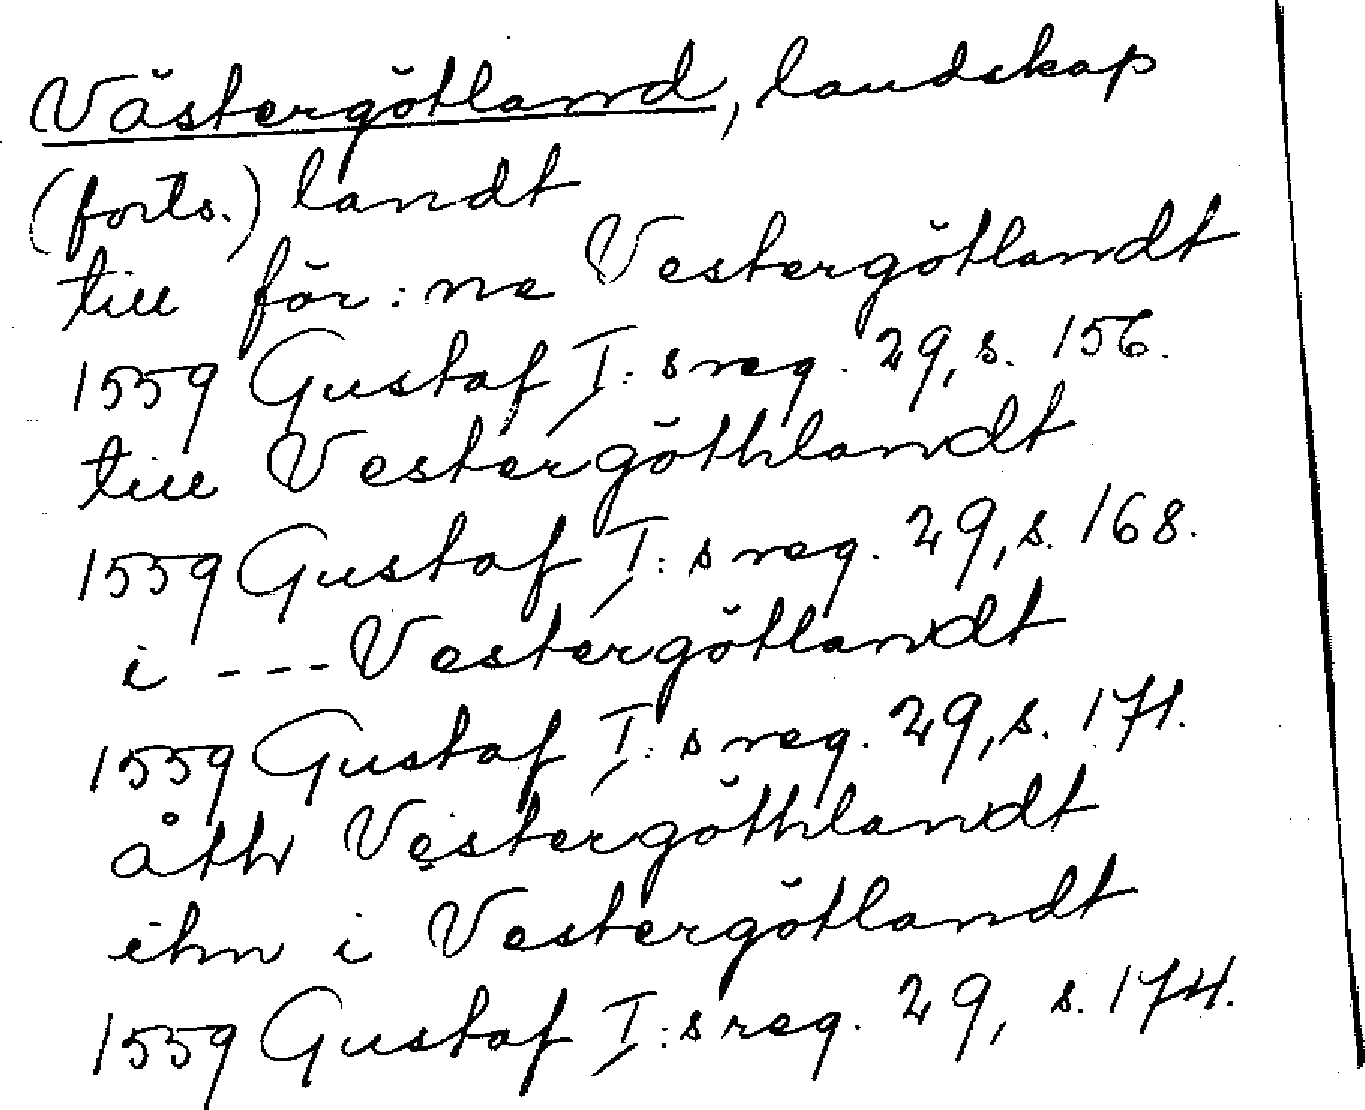 Västergötland, landskap
(forts.) landt
till för:ne Vestergötlandt
1559 Gustaf I:s reg. 29, s. 156.
till Vestergöthlandt
1559 Gustaf I:s reg. 29, s. 168.
i --- Vestergötlandt
1559 Gustaf I:s reg. 29, s. 171.
åth Vestergöthlandt
ihn i Vestergötlandt
1559 Gustaf I:s reg. 29, s. 174.